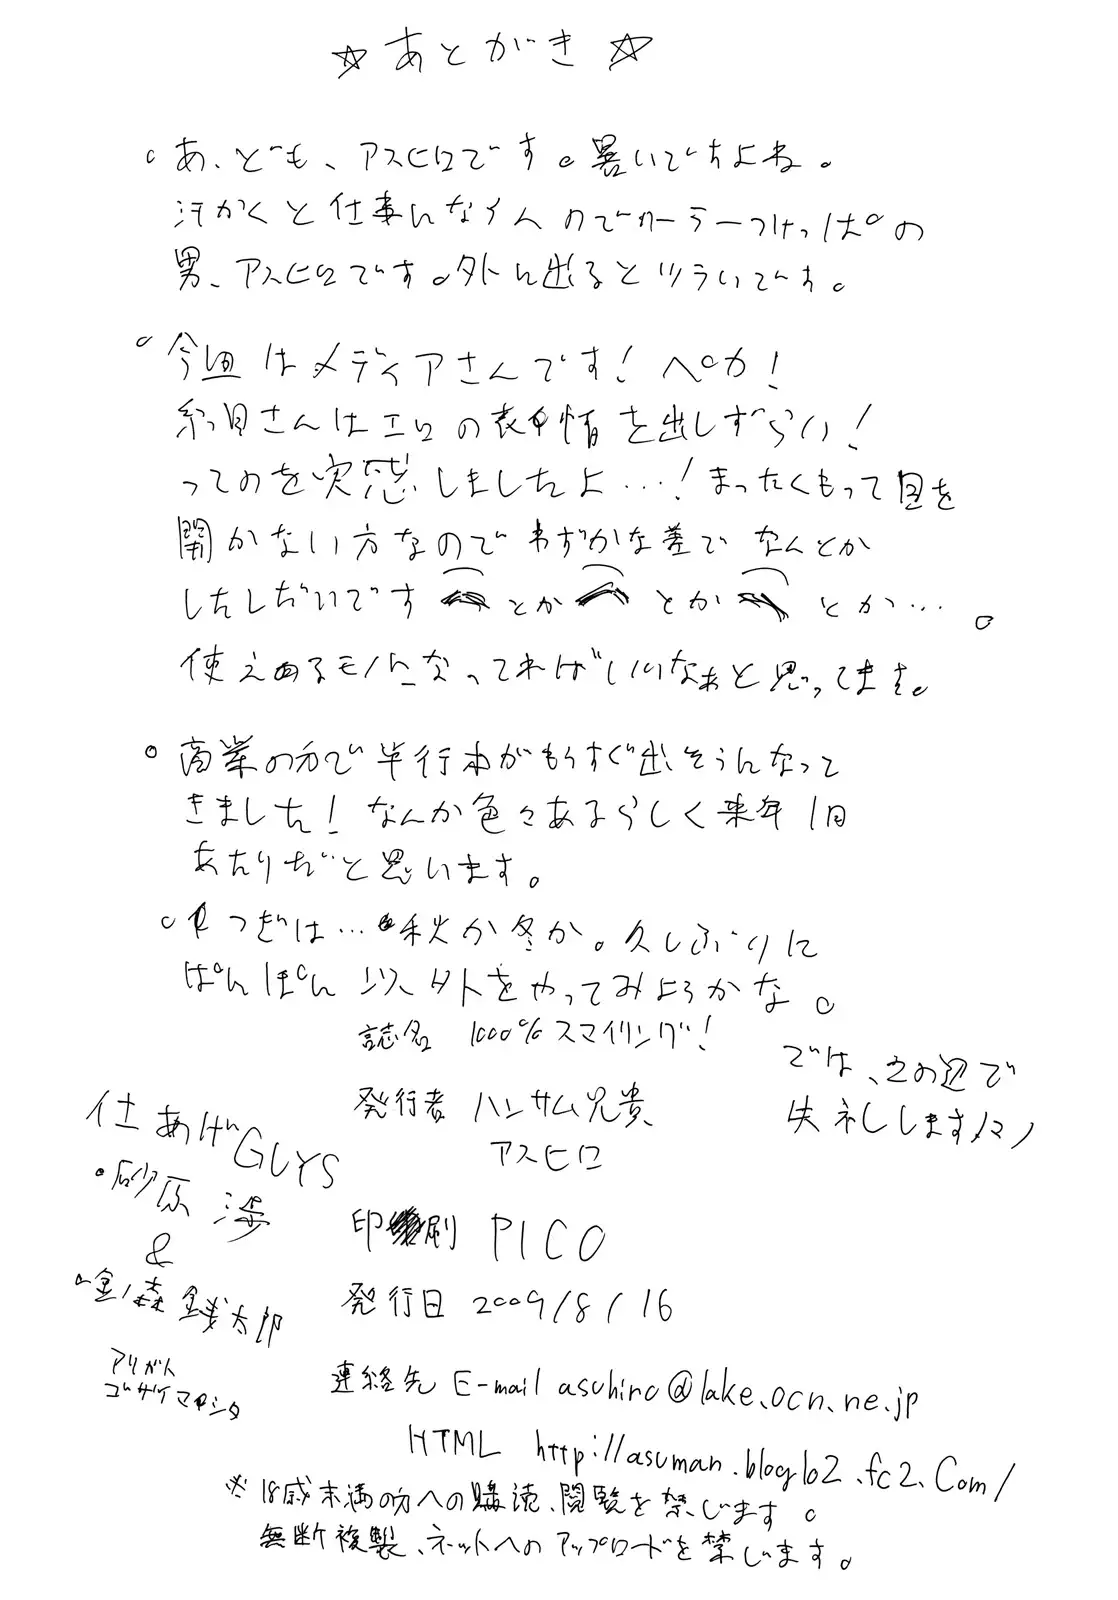 ☆あとがき☆
。あ、ども、アスヒロです。暑いですよね。
汗かくと仕事にならんのでクーラーつけっぱの
男、アスヒロです。外に出るとツライです。
。今回はメディアさんです!ペカ!
糸目さんはエロの表情を出しずらい!
ってのを実感しましたよ…!まったくもって目を
開かない方なのでわずかな差でなんとか
したしだいです とか とか とか…。
使えるモノになってればいいなぁと思ってます。
。商業の方で単行本がもうすぐ出そうになって
きました!なんか色々あるらしく来年1月
あたりだと思います。
。つぎは…秋か冬か。久しぶりに
ぽんぽん以外をやってみようかな。
誌名 1000%スマイリング!
では、この辺で
失礼しますノシ
発行者 ハンサム兄貴
アスヒロ
仕あげGUYS
・砂原 渉
&
・金ノ森 銭太郎
アリガト
ゴザイマシタ
印刷 PICO
発行日 2009/8/16
連絡先 E-mail asuhiro@lake.ocn.ne.jp
HTML http://asuman.blog102.fc2.com/
※18歳未満の方への購読、閲覧を禁じます。
無断複製、ネットへのアップロードを禁じます。